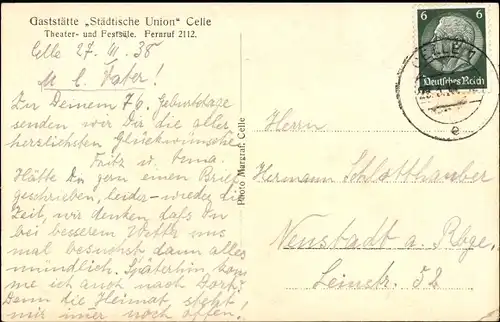 Gaststätte „Städtische Union" Celle
Theater- und Festsäle. Fernruf 2112.
Celle 27. III. 38
M. l. Vater!
Zu Deinem 76. Geburtstage
senden wir Dir die aller
herzlichsten Glückwünsche
Fritz u. Erna.
Hätte Dir gern einen Brief
geschrieben, leider wieder die
Zeit, wir denken daß Du
bei besserem Wetter uns
mal besuchst dann alles
mündlich. Späterhin kom
me ich auch nach dort.
Denn die Heimat steht
mir immer noch offen!
Photo Margraf, Celle
6 6
Deutsches Reich
CELLE 1
e
Herrn
Hermann Schlotthauber
Neustadt a. Rbge.
Leinstr. 52